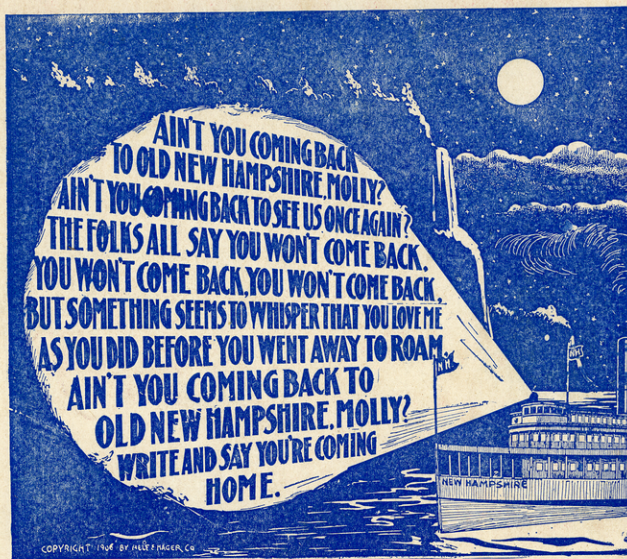 AIN'T YOU COMING BACK
TO OLD NEW HAMPSHIRE, MOLLY?
AIN'T YOU COMING BACK TO SEE US ONCE AGAIN?
THE FOLKS ALL SAY YOU WON'T COME BACK,
YOU WON'T COME BACK, YOU WON'T COME BACK,
BUT SOMETHING SEEMS TO WHISPER THAT YOU LOVE ME
AS YOU DID BEFORE YOU WENT AWAY TO ROAM,
AIN'T YOU COMING BACK TO
OLD NEW HAMPSHIRE, MOLLY?
WRITE AND SAY YOU'RE COMING
HOME.
NH
NH
NEW HAMPSHIRE
COPYRIGHT 1906 BY HELF & HAGER CO